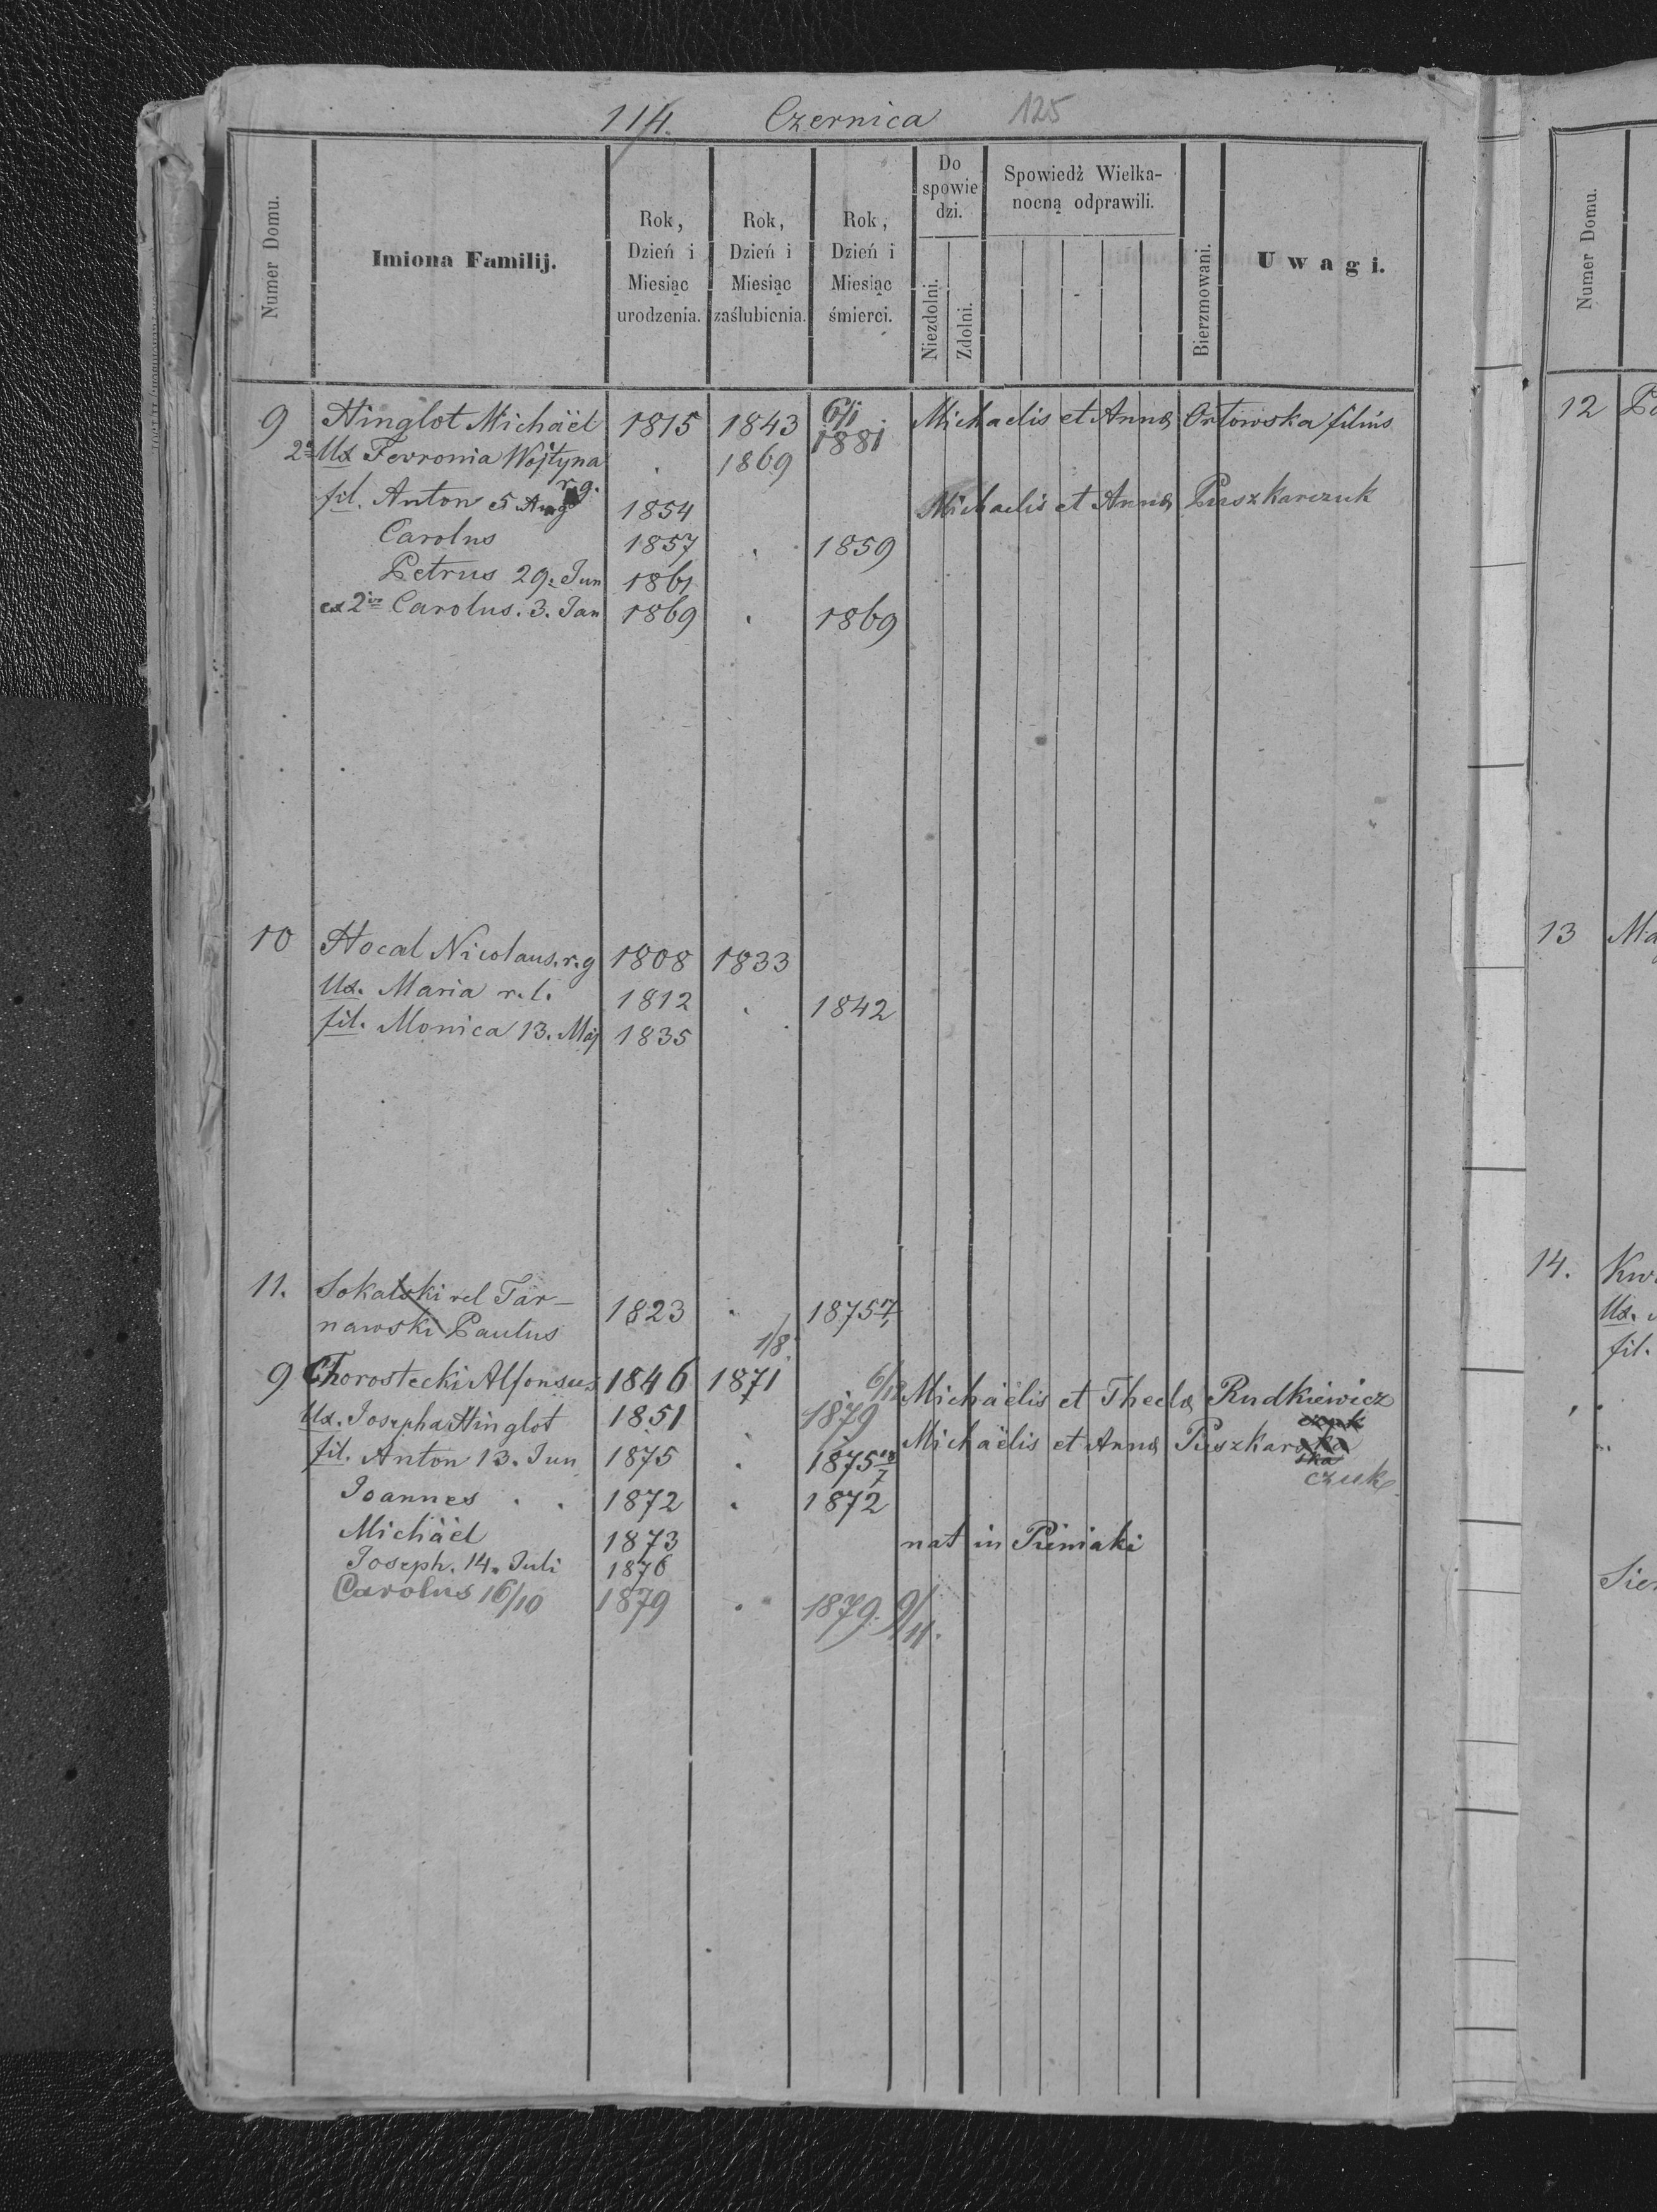 114. Czernica 125
Numer Domu.
Imiona Familij.
Rok, Dzień i Miesiąc urodzenia.
Rok, Dzień i Miesiąc zaślubienia.
Rok, Dzień i Miesiąc śmierci.
Do spowie dzi.
Niezdolni.
Zdolni.
Spowiedź Wielka-
nocną odprawili.
Bierzmowani.
Uwagi.
9 Hinglot Michäel 1815 1843 6/1 1881 Michaelis et Annæ Orłowska filius
2a Ux Fevronia Wojtyna . 1869
r.g.
fil. Anton 5 Aug 1854 Michaelis et Annæ Puszkarczuk
Carolus 1857 . 1859
Petrus 29. Jun 1861
ex 2va Carolus. 3. Jan 1869 . 1869
10 Hocal Nicolaus. r. g 1808 1833
Ux. Maria r. l. 1812 . 1842
fil. Monica 13. Maj 1835
11. Sokalski vel Tar-
nawski Paulus 1823 . 1875
1/8.
9 Chorostecki Alfonsus 1846 1871 Michäelis et Theclæ Rudkiewicz
Ux. Josepha Hinglot 1851 . 1879 Michäelis et Annæ Puszkar
czuk
fil. Anton 13. Jun 1875 . 1875
Joannes . . 1872 . 1872
Michäel 1873 nat in Pieniaki
Joseph. 14. Juli 1876
Carolus 16/10 1879 . 1879. 9/11.
Numer Domu.
12
13
14.
fil.